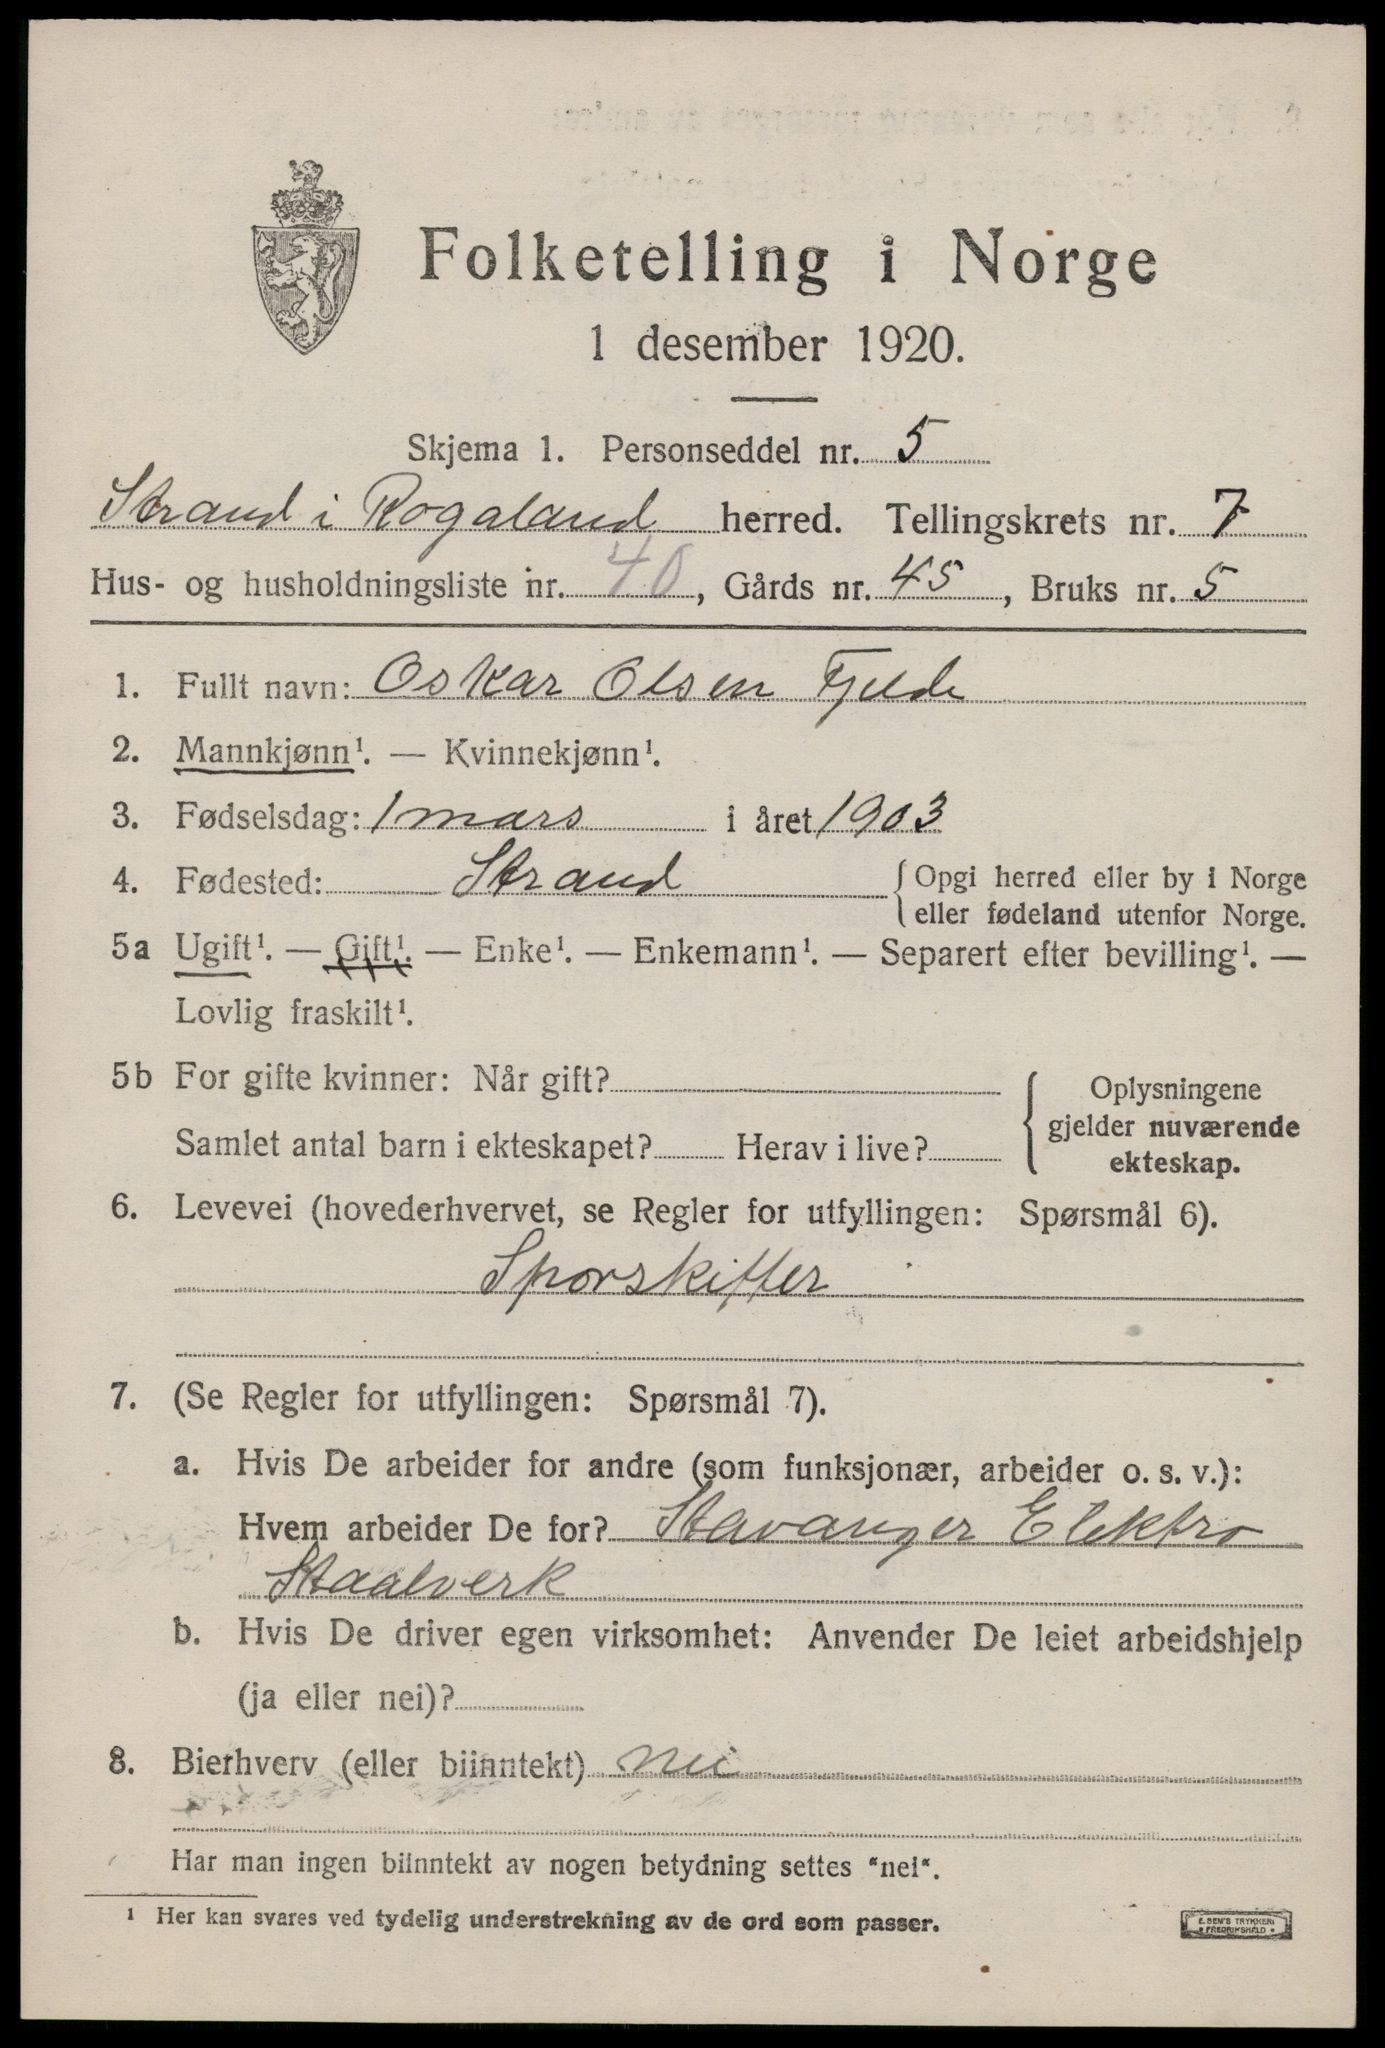 Folketelling i Norge
1 desember 1920.
Skjema 1. Personseddel nr. 5
Strand i Rogaland herred. Tellingskrets nr. 7
Hus- og husholdningsliste nr. 40, Gårds nr. 45, Bruks nr. 5
1. Fullt navn: Oskar Olsen Fjelde
2. Mannkjønn¹. — Kvinnekjønn¹.
3. Fødselsdag: 1 mars i året 1903
4. Fødested: Strand { Opgi herred eller by i Norge
eller fødeland utenfor Norge.
5a Ugift¹. — Gift¹. — Enke¹. — Enkemann¹. — Separert efter bevilling¹. —
Lovlig fraskilt¹.
5b For gifte kvinner: Når gift?
Samlet antal barn i ekteskapet? Herav i live?
{ Oplysningene
gjelder nuværende
ekteskap.
6. Levevei (hovederhvervet, se Regler for utfyllingen: Spørsmål 6).
Sporskifter
7. (Se Regler for utfyllingen: Spørsmål 7).
a. Hvis De arbeider for andre (som funksjonær, arbeider o. s. v.):
Hvem arbeider De for? Stavanger Elektro
Staalverk
b. Hvis De driver egen virksomhet: Anvender De leiet arbeidshjelp
(ja eller nei)?
8. Bierhverv (eller biinntekt) nei
Har man ingen biinntekt av nogen betydning settes "nei".
¹ Her kan svares ved tydelig understrekning av de ord som passer.
E. SEM'S TRYKKERI
• FREDRIKSHALD •